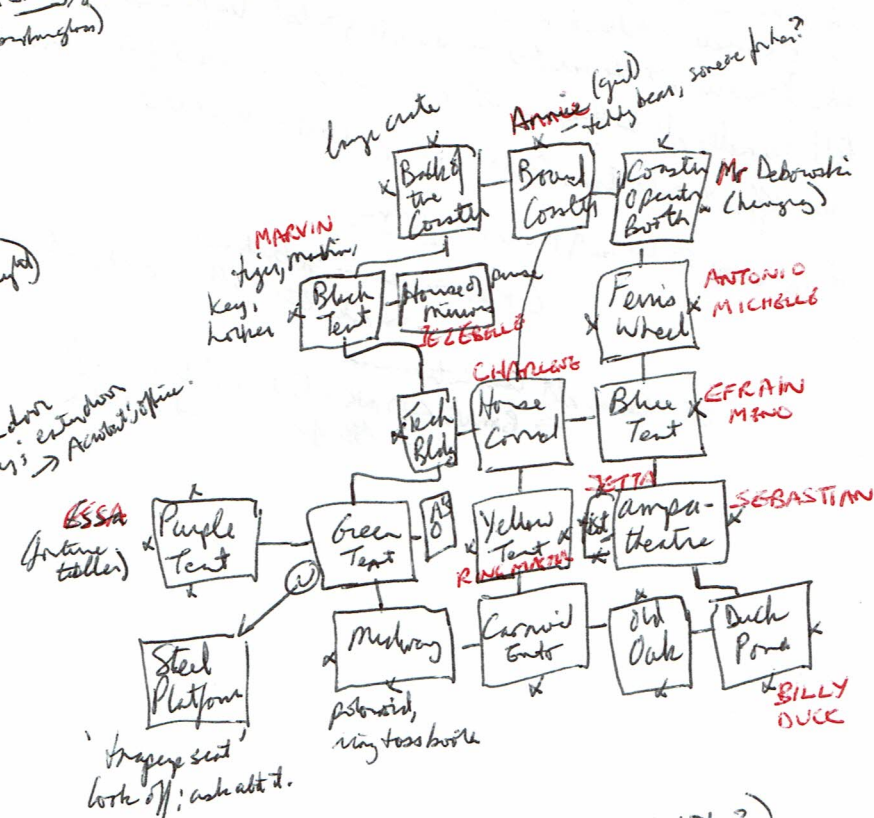 large crate
Annie (girl)
- teddy bear, someone
Back of
the
Coaster
Board
Coaster
Coaster
Operator
Booth
Mr Debowski
(hanging)
MARVIN
tiger,
key,
Black
Tent
House of
Mirrors
purse
JEZEBELLE
Ferris
Wheel
ANTONIO
MICHELLE
CHARLENE
Tech
Bldg
House
Corral
Blue
Tent
EFRAIN
MINO
door
→ Acrobat's office.
ESSA
(fortune
teller)
Purple
Tent
Green
Tent
A's
O
Yellow
Tent
RINGMASTER
JETTA
ampa-
theatre
SEBASTIAN
Steel
Platform
Midway
Carnival
Entr
Old
Oak
Duck
Pond
BILLY
DUCK
polaroid,
ring toss booth
'trapeze seat'
look off; ask abt it.